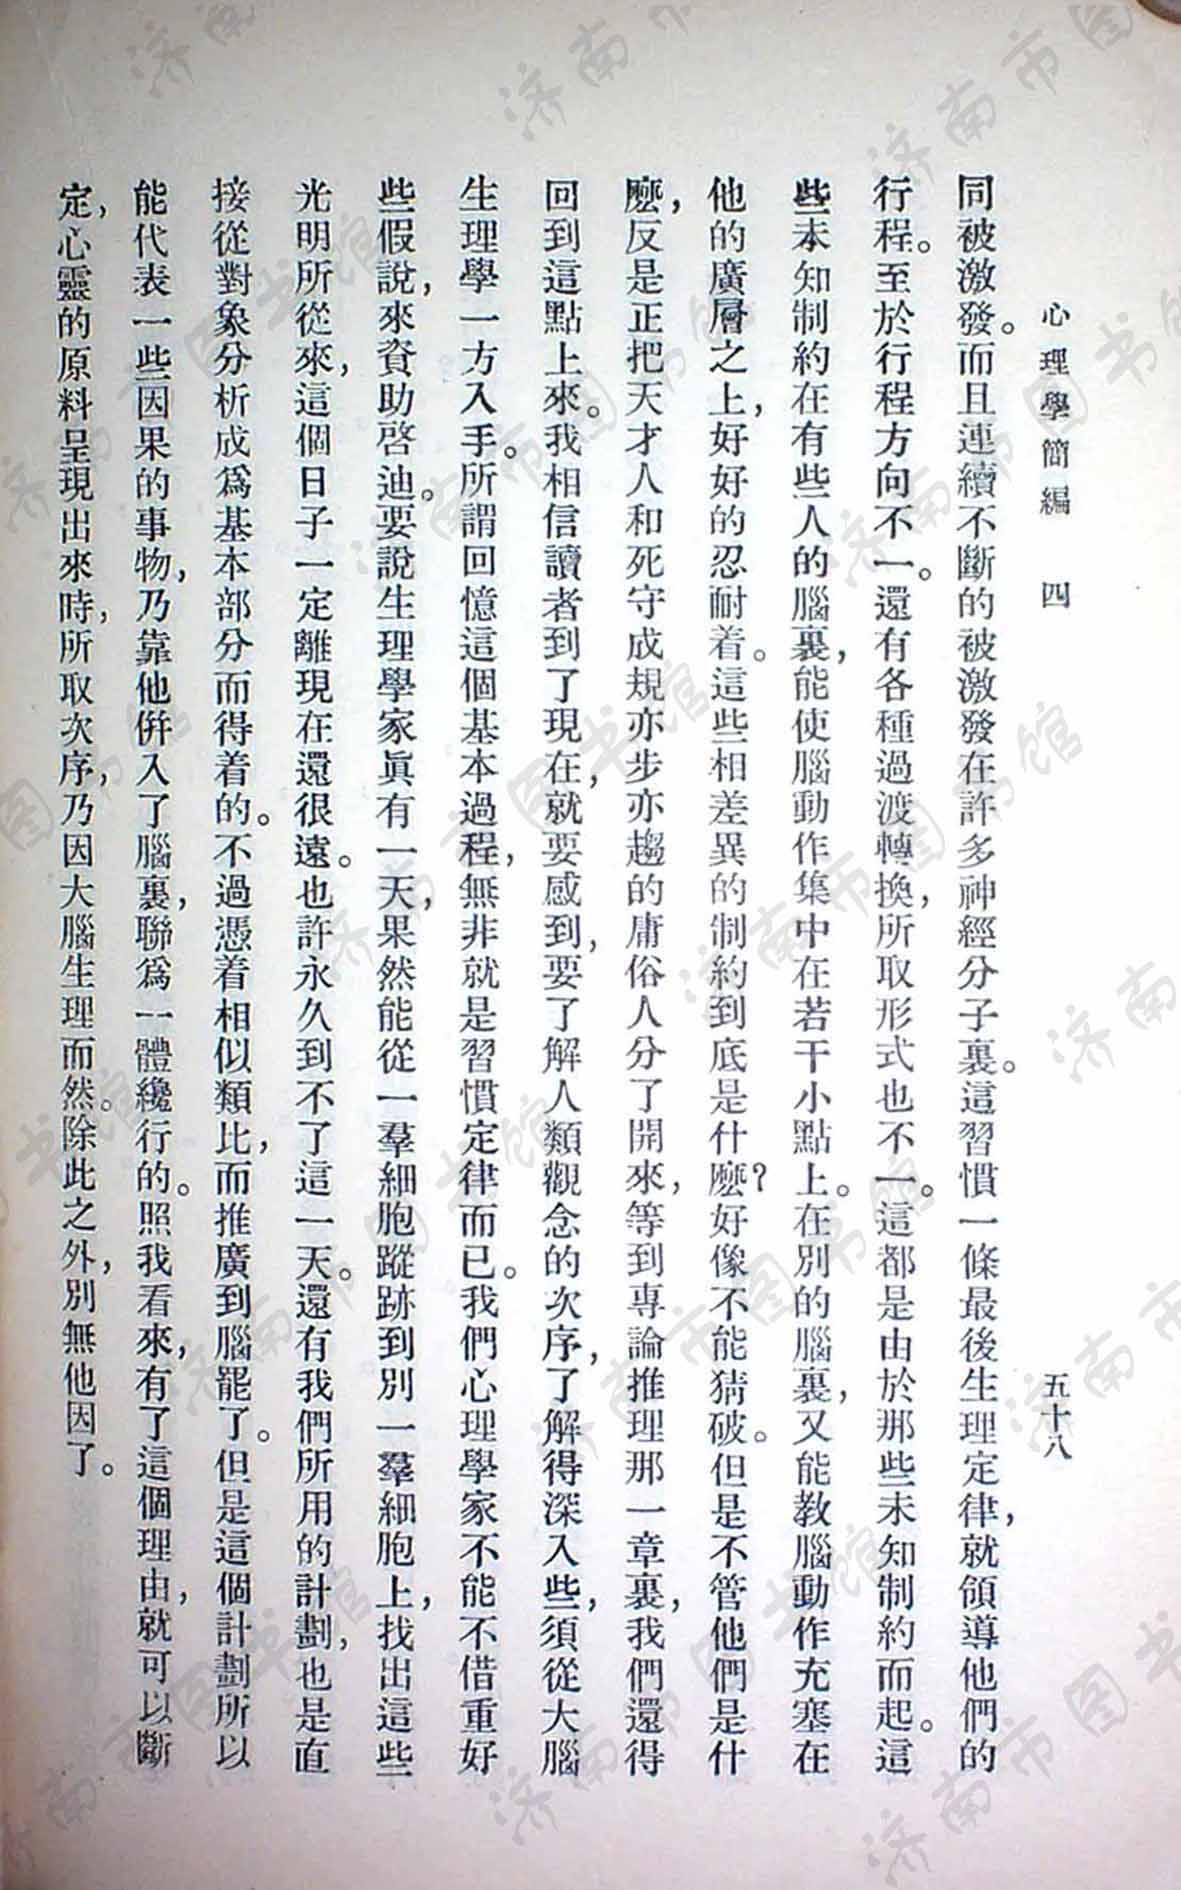 心理學簡編 四 五十八
同被激發。而且連續不斷的被激發在許多神經分子裏。這習慣一條最後生理定律,就領導他們的
行程。至於行程方向不一。還有各種過渡轉換,所取形式也不一。這都是由於那些未知制約而起。這
些未知制約在有些人的腦裏,能使腦動作集中在若干小點上。在別的腦裏,又能教腦動作充塞在
他的廣層之上,好好的忍耐着。這些相差異的制約到底是什麼?好像不能猜破。但是不管他們是什
麼,反是正把天才人和死守成規亦步亦趨的庸俗人分了開來,等到專論推理那一章裏,我們還得
回到這點上來。我相信讀者到了現在,就要感到,要了解人類觀念的次序,了解得深入些,須從大腦
生理學一方入手。所謂回憶這個基本過程,無非就是習慣定律而已。我們心理學家不能不借重好
些假說,來資助啓迪。要說生理學家眞有一天,果然能從一羣細胞蹤跡到別一羣細胞上,找出這些
光明所從來,這個日子一定離現在還很遠。也許永久到不了這一天。還有我們所用的計劃,也是直
接從對象分析成爲基本部分而得着的。不過憑着相似類比,而推廣到腦罷了。但是這個計劃所以
能代表一些因果的事物,乃靠他併入了腦裏,聯爲一體纔行的。照我看來,有了這個理由,就可以斷
定,心靈的原料呈現出來時,所取次序,乃因大腦生理而然。除此之外,別無他因了。
济南市图书馆